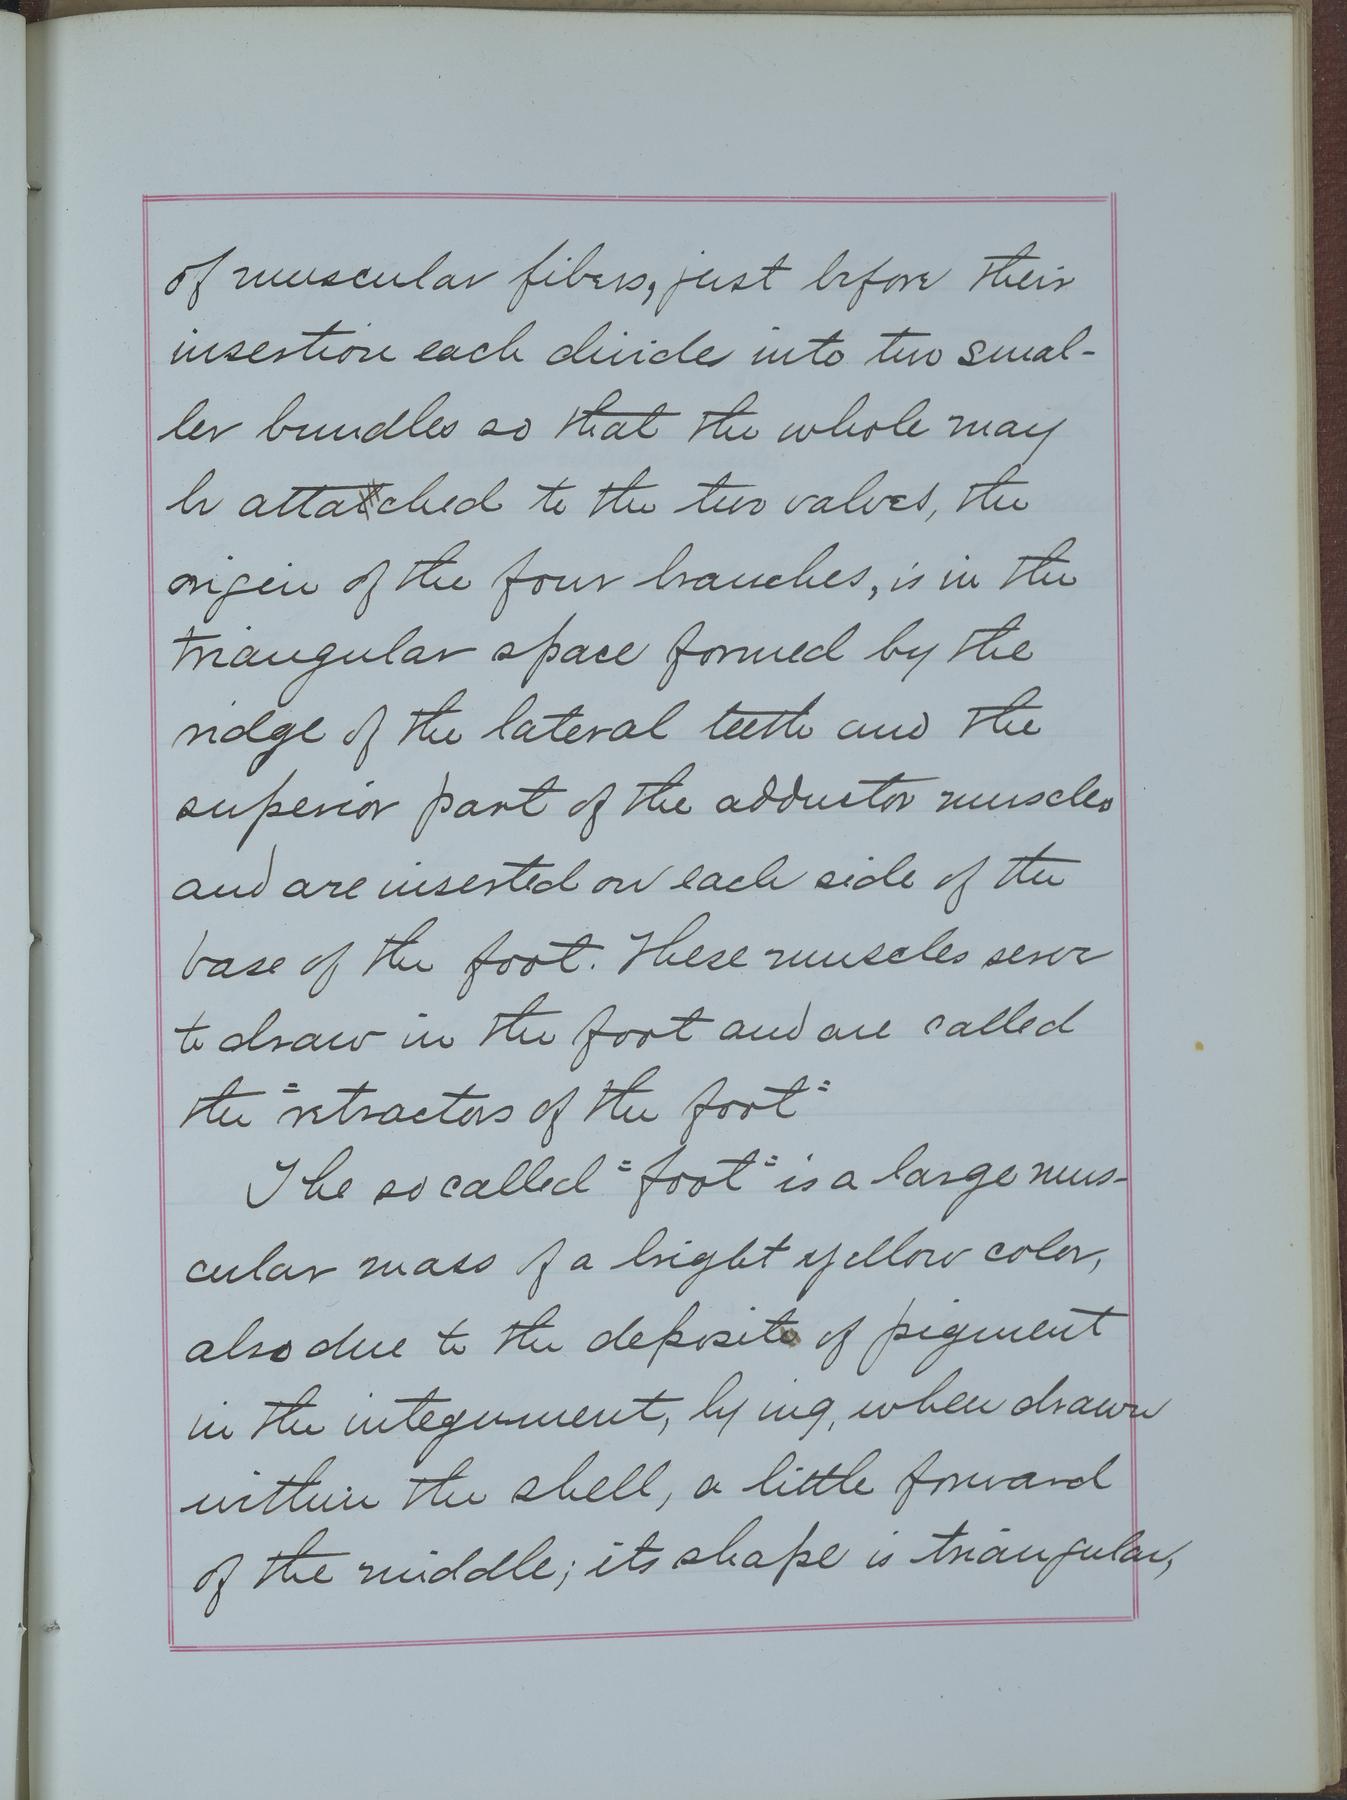 of muscular fibers, just before their
insertion each divide into two smal-
ler bundles so that the whole may
be attached to the two valves, the
origin of the four branches, is in the
triangular space formed by the
ridge of the lateral teeth and the
superior part of the adductor muscles
and are inserted on each side of the
base of the foot. These muscles serve
to draw in the foot and are called
the "retractors of the foot"
The so called "foot" is a large mus-
cular mass of a bright yellow color,
also due to the deposite of pigment
in the integument, lying, when drawn
within the shell, a little forward
of the middle; its shape is triangular,